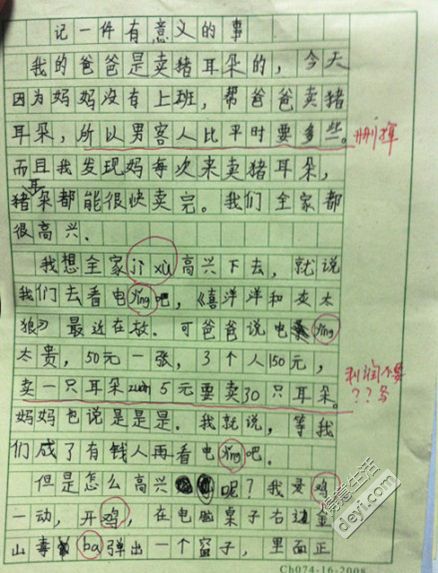 记一件有意义的事
我的爸爸是卖猪耳朵的，今天
因为妈妈没有上班，帮爸爸卖猪
耳朵，所以男客人比平时要多些。
删掉
而且我发现妈每次来卖猪耳朵，
猪耳朵都能很快卖完。我们全家都
很高兴．
我想全家jì xù高兴下去，就说
我们去看电yǐng吧，《喜洋洋和灰太
狼》最近在放．可爸爸说电yǐng
太贵，50元一张，3个人150元，
利润不要
??多
卖一只耳朵zuàn5元要卖30只耳朵。
妈妈也说是是是．我就说，等我
们成了有钱人再看电yǐng吧．
但是怎么高兴呢？我灵鸡
一动，开鸡，在电脑桌子右边
山毒ba弹出一个窗子，里面正
得意生活
deyi.com
Ch074-16-2008